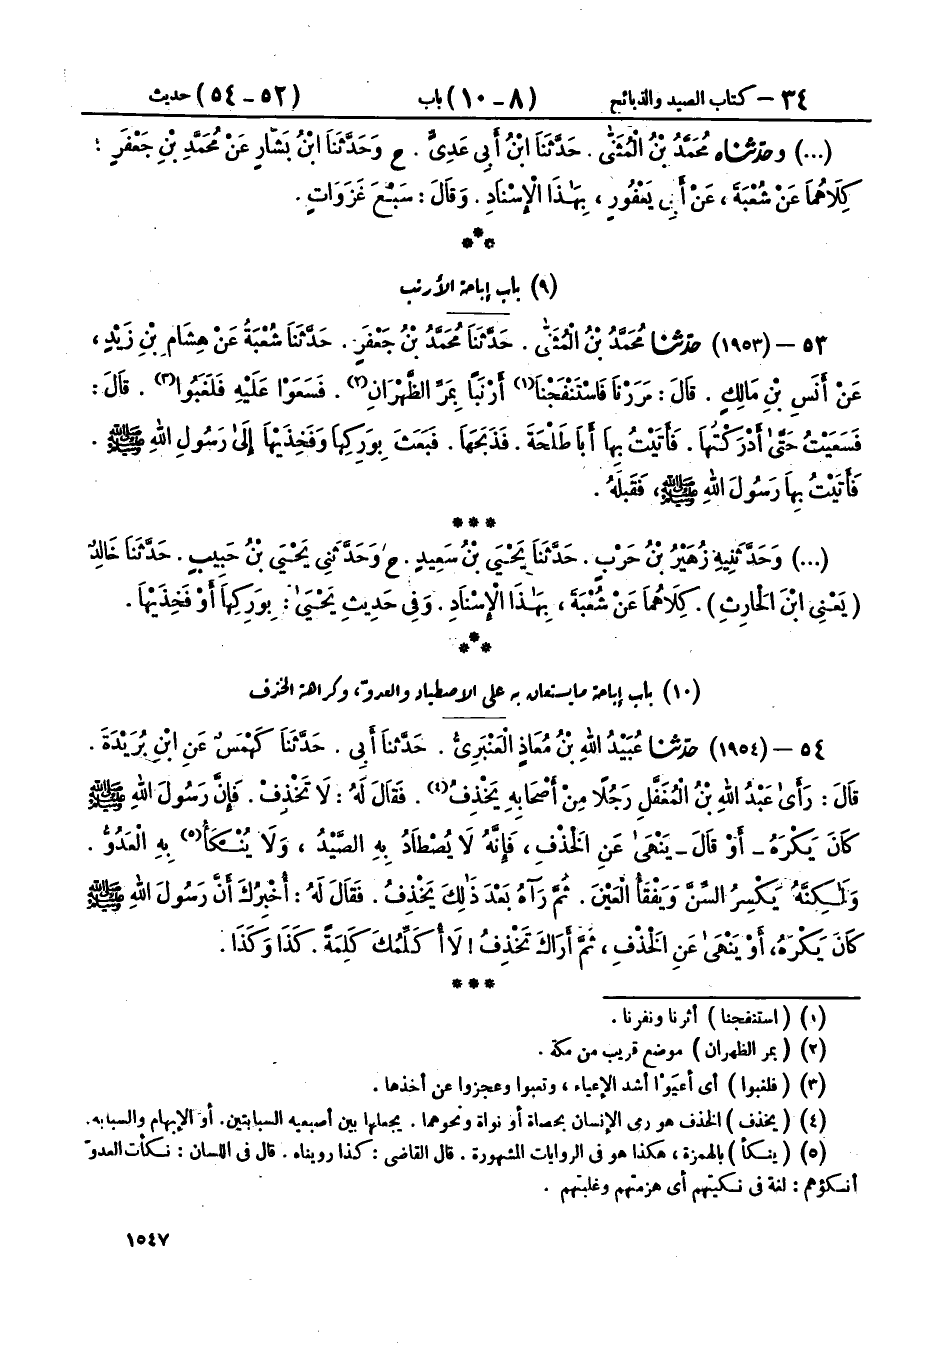 ٣٤ – كتاب الصيد والذبائح (٨ – ١٠) باب (٥٢ – ٥٤) حديث
(...) وحَدَّثَنَاه مُحَمَّدُ بْنُ الْمُثَنَّىٰ . حَدَّثَنَا ابْنُ أَبِي عَدِيٍّ . ح وَحَدَّثَنَا ابْنُ بَشَّارٍ عَنْ مُحَمَّدِ بْنِ جَعْفَرٍ :
كِلَاهُمَا عَنْ شُعْبَةَ ، عَنْ أَبِي يَعْفُورٍ ، بِهَٰذَا الْإِسْنَادِ . وَقَالَ : سَبْعَ غَزَوَاتٍ .
***
(٩) باب إباحة الأرنب
٥٣ – (١٩٥٣) حَدَّثَنَا مُحَمَّدُ بْنُ الْمُثَنَّىٰ . حَدَّثَنَا مُحَمَّدُ بْنُ جَعْفَرٍ . حَدَّثَنَا شُعْبَةُ عَنْ هِشَامِ بْنِ زَيْدٍ ،
عَنْ أَنَسِ بْنِ مَالِكٍ . قَالَ : مَرَرْنَا فَاسْتَنْفَجْنَا(١) أَرْنَبًا بِمَرِّ الظَّهْرَانِ(٢) . فَسَعَوْا عَلَيْهِ فَلَغَبُوا(٣) . قَالَ :
فَسَعَيْتُ حَتَّىٰ أَدْرَكْتُهَا . فَأَتَيْتُ بِهَا أَبَا طَلْحَةَ . فَذَبَحَهَا . فَبَعَثَ بِوَرِكِهَا وَفَخِذَيْهَا إِلَىٰ رَسُولِ اللهِ ﷺ .
فَأَتَيْتُ بِهَا رَسُولَ اللهِ ﷺ ، فَقَبِلَهُ .
***
(...) وَحَدَّثَنِيهِ زُهَيْرُ بْنُ حَرْبٍ . حَدَّثَنَا يَحْيَىٰ بْنُ سَعِيدٍ . ح وَحَدَّثَنِي يَحْيَىٰ بْنُ حَبِيبٍ . حَدَّثَنَا خَالِدٌ
( يَعْنِي ابْنَ الْحَارِثِ ) . كِلَاهُمَا عَنْ شُعْبَةَ ، بِهَٰذَا الْإِسْنَادِ . وَفِي حَدِيثِ يَحْيَىٰ : بِوَرِكِهَا أَوْ فَخِذَيْهَا .
***
(١٠) باب إباحة ما يستعان به على الاصطياد والعدوّ ، وكراهة الخذف
٥٤ – (١٩٥٤) حَدَّثَنَا عُبَيْدُ اللهِ بْنُ مُعَاذٍ الْعَنْبَرِيُّ . حَدَّثَنَا أَبِي . حَدَّثَنَا كَهْمَسٌ عَنِ ابْنِ بُرَيْدَةَ .
قَالَ : رَأَىٰ عَبْدُ اللهِ بْنُ الْمُغَفَّلِ رَجُلًا مِنْ أَصْحَابِهِ يَخْذِفُ(٤) . فَقَالَ لَهُ : لَا تَخْذِفْ . فَإِنَّ رَسُولَ اللهِ ﷺ
كَانَ يَكْرَهُ – أَوْ قَالَ – يَنْهَىٰ عَنِ الْخَذْفِ ، فَإِنَّهُ لَا يُصْطَادُ بِهِ الصَّيْدُ ، وَلَا يُنْكَأُ(٥) بِهِ الْعَدُوُّ .
وَلَٰكِنَّهُ يَكْسِرُ السِّنَّ وَيَفْقَأُ الْعَيْنَ . ثُمَّ رَآهُ بَعْدَ ذَٰلِكَ يَخْذِفُ . فَقَالَ لَهُ : أُخْبِرُكَ أَنَّ رَسُولَ اللهِ ﷺ
كَانَ يَكْرَهُ ، أَوْ يَنْهَىٰ عَنِ الْخَذْفِ ، ثُمَّ أَرَاكَ تَخْذِفُ ! لَا أُكَلِّمُكَ كَلِمَةً . كَذَا وَكَذَا .
***
(١) ( استنفجنا ) أثرنا ونفرنا .
(٢) ( بمر الظهران ) موضع قريب من مكة .
(٣) ( فلغبوا ) أى أعيَوْا أشد الإعياء ، وتعبوا وعجزوا عن أخذها .
(٤) ( يخذف ) الخذف هو رمى الإنسان بحصاة أو نواة ونحوهما . يجعلها بين أصبعيه السبابتين . أو الإبهام والسبابه .
(٥) ( ينكأ ) بالهمزة ، هكذا هو فى الروايات المشهورة . قال القاضى : كذا رويناه . قال فى اللسان : نكأت العدوّ
أنكؤهم : لغة فى نكيتهم أى هزمتهم وغلبتهم .
١٥٤٧